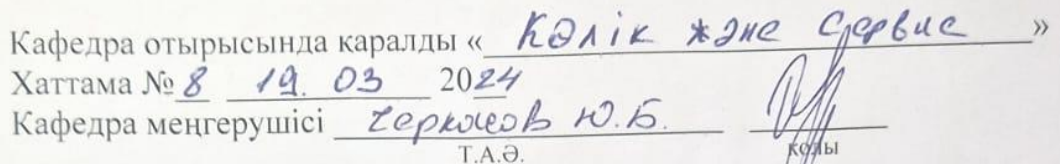 Кафедра отырысында каралды « Көлік және Сервис »
Хаттама № 8 19. 03 2024
Кафедра меңгерушісі Ю.Б.
Т.А.Ә. қолы